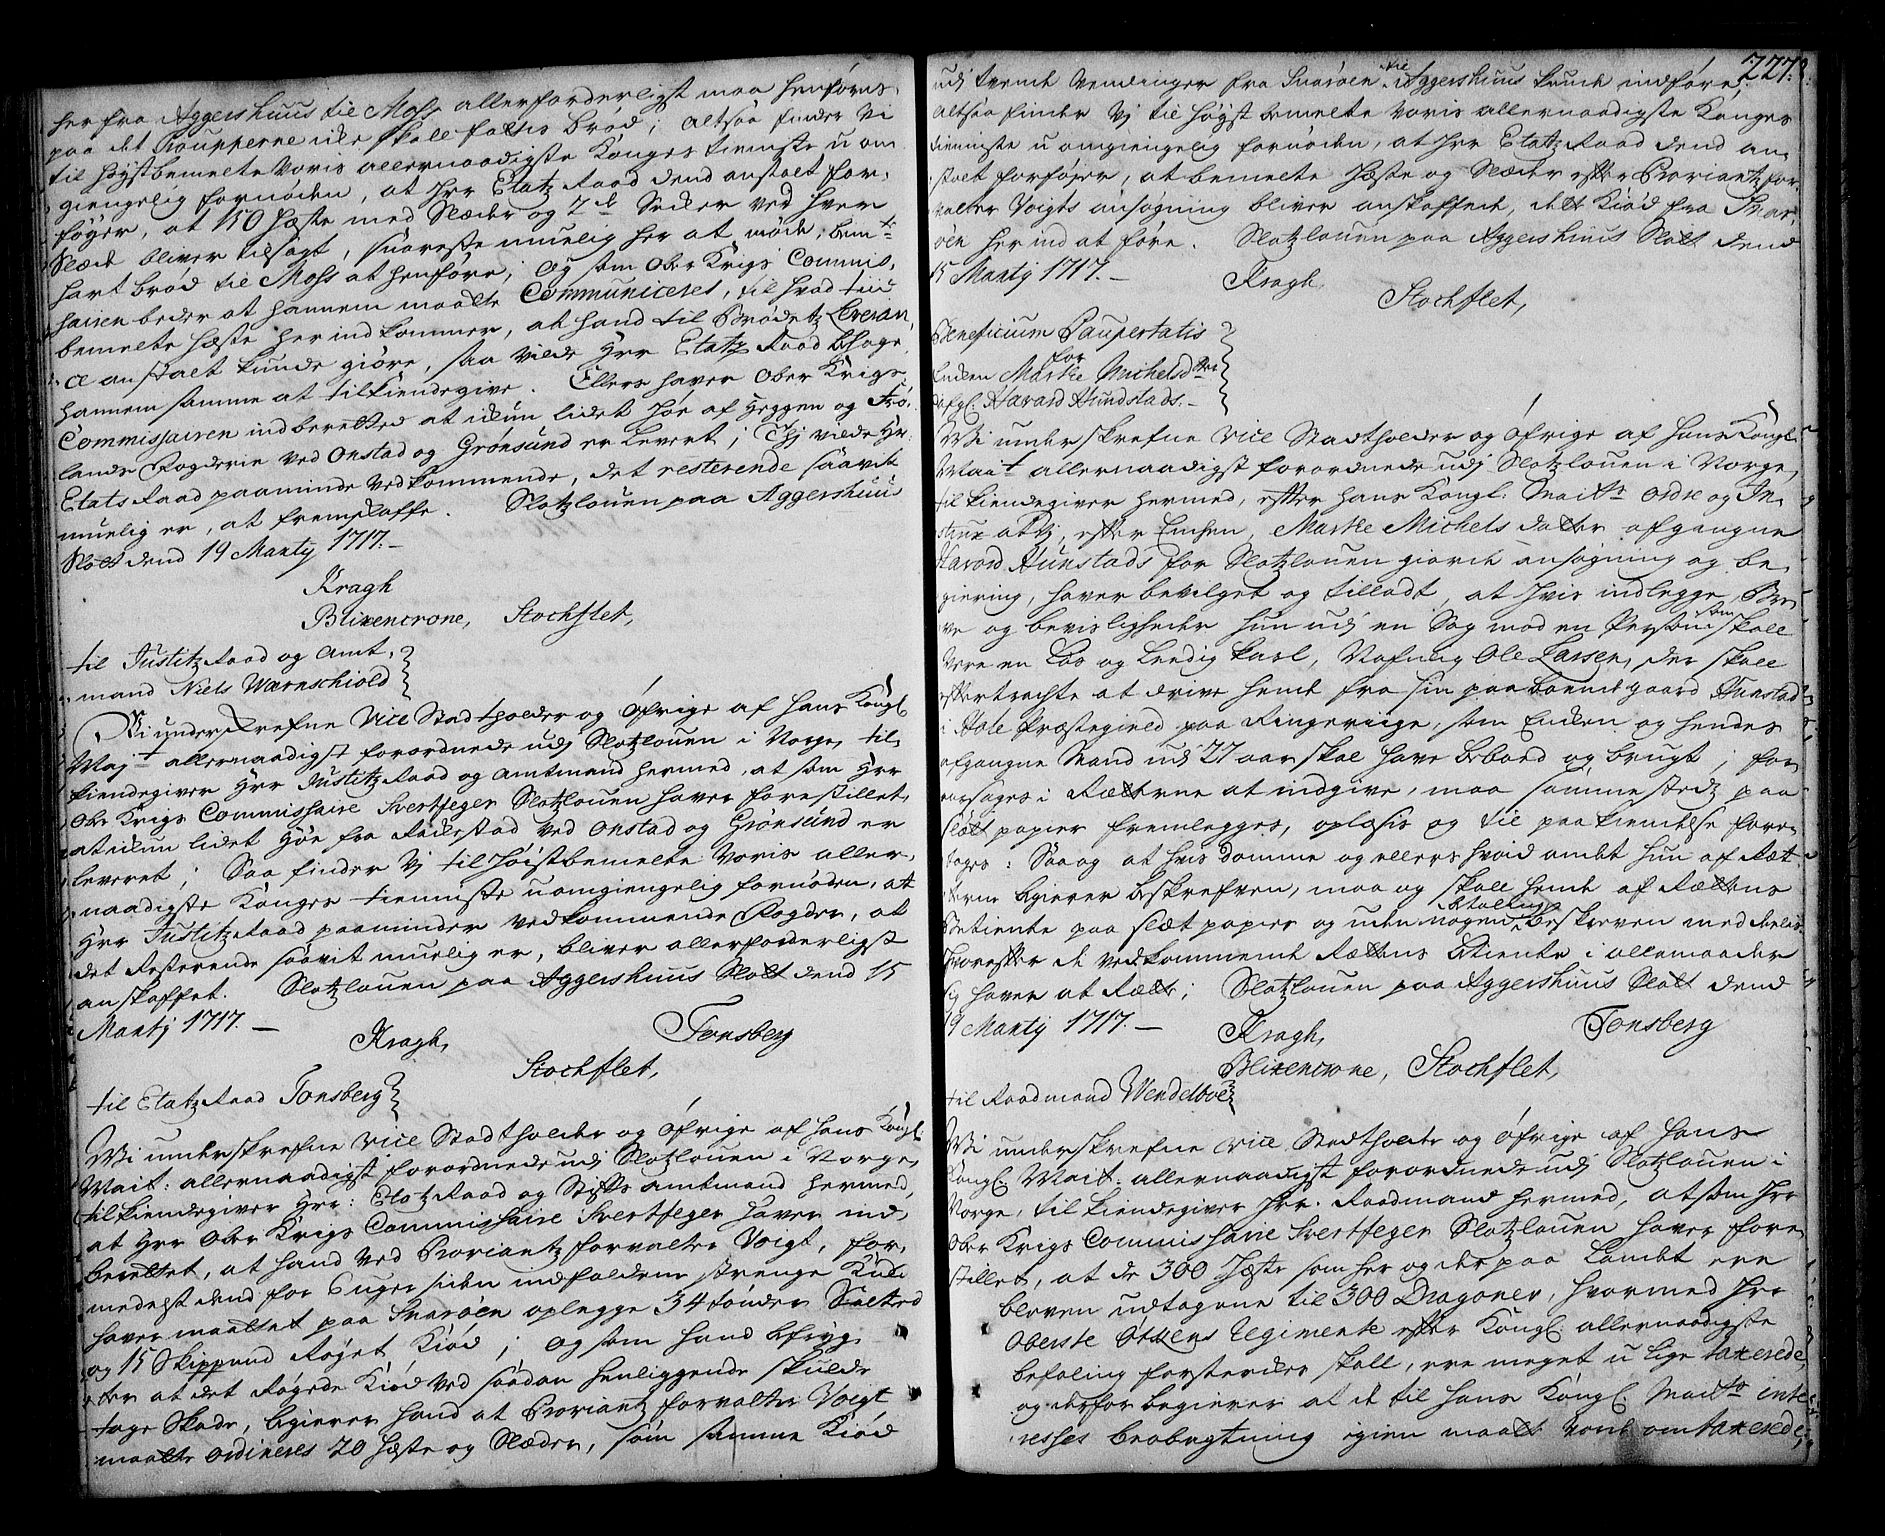 her fra Aggershuus til Moss allerforderligst maa henføres,
paa det Troupperne icke skall fattis Brød; altsaa finder Vi
til høystbemelte Voris allernaadigste Konges tieniste u om
giengelig fornøden, at Herr Etatz Raad dend anstalt for,
føyer, at 110 hæste med Slæder og 2de Secker ved hver
Slæde bliver tilsagt, snareste muelig her at møde, bemte
hart brød til Moss at henføre; Og som Ober Krigs Commis,
sairen beder at hannem maatte Communiceret, til hvad tiid
bemelte hæste her ind kommer, at hand til Brødetz Leveran,
ce anstalt kunde giøre, saa vilde Hrr Etatz Raad behage,
hannem samme at tilkiendegive. Ellers haver Ober Krigs
Commissairen indberettet at ickun lidet høe af Heggen og Frø,
lands Fogderie ved Onstad og Grønsund er leveret; Thj vilde Hr:
Etats Raad paaminde vedkommende, det resterende saavit
muelig er, at fremskaffe. Slotzlouen paa Aggershuus
Slott dend 19 Martij 1717.
Kragh
Blixencrone, Stochflet,
til Justitz Raad og Amt,
mand Niels Wærnschiold
Wi underskrefne Vice Stadtholder og Øfrige af Hans Kongl
Majt allernaadigst forordnede udj Slotzlouen i Norge, til,
kiendegiver Hrr Justitz Raad og Amtmand hermed, at som Hrr
Ober Krigs Commissaire Svertfeger Slotzlouen haver forestillet,
at ickun lidet Høe fra Rackestad ved Onstad og Grønsund er
leveret; Saa finder Vj til Høistbemelte Voris aller,
naadigste Konges tienniste uomgiengelig fornøden, at
Hrr Justitz Raad paaminder vedkommende Fogder, at
det Resterende saavit muelig er, bliver allerforderligst
anskaffet. Slotzlouen paa Aggershuus Slott dend 15
Martij 1717.
Kragh, Tonsberg
Stochflet,
til Etatz Raad Tonsberg
Wi underskrefne Vice Stadtholder og Øfrige af Hans Kongl
Mait: allernaadigst forordnede udj Slotzlouen i Norge,
tilkiendegiver Hrr: Etatz Raad og Stifts amtmand hermed,
at Hrr Ober Krigs Commissaire Svertfeger haver ind,
berettet, at hand ved Proviantz forvalter Voigt, for,
medelst dend for 6 uger siden indfaldene strenge Kuld
haver maattet paa Snarøen oplegge 34 tønder Saltet
og 15 Skippund Røget Kiød; og som hand befryg
ter at det Røgede Kiød ved saadan henliggende skulde
tage Skade, begierer hand at Proviantz forvalter Voigt
maatte ordineres 20 hæste og Slæder, som samme Kiød
227.
udj trende Vendinger fra Snarøen til Aggershuus kunde indføre;
altsaa finder Vj til høyst bemelte voris allernaadigste Konges
tienniste u omgiengelig fornøden, at Hrr Etatz Raad dend an,
stalt forføyer, at bemelte hæste og Slæder efter Proviantz for,
valter Voigts ansøgning bliver anskaffed, dett Kiød fra Snar,
øen her ind at føre. Slotzlouen paa Aggershuus Slott dend
15 Martij 1717.
Kragh,
Stochflet,
Beneficium Paupertatis
for
Encken Marthe Michelsdtter
Afgl: Harvard Hunstads.
Wi underskrefne Vice Stadtholder og Øfrige af Hans Kongl.
Mait allernaadigst forordnede udj Slotzlouen i Norge,
tilkiendegiver hermed, efter Hans Kongl: Maits ordre og In,
strux at Vj, efter Encken Marthe Michels datter afgangne
Harvord Hunstads for Slotzlouen giorde ansøgning og be,
giering, haver bevilget og tilladt, at hvis indlegge, Bre,
ve og bevisligheder hun udj en Sag mod en Person som skall
være en Løs og Ledig karl, Nafnlig Ole Larsen, der skall
eftertragte at drive hende fra sin paaboende gaard Hunstad
i Hole Præstegield paa Ringeriige, som Encken og hendes
afgangne Mand udj 27 aar skal have beboed og brugt; for
aarsages i Rætterne at indgive, maa sammestedz paa
slett papier fremlegges, oplæsis og til paakiendelse fore,
tages; Saa og at hvis Domme og ellers hvad andet hun af Ræt
terne begierer beskrefven, maa og skall hende af Rættens
Betiente paa slæt papier og uden nogen betaling beskreven meddeelis
Hvorefter de vedkommende Rættens Betiente i allemaader
sig haver at Rætte; Slotzlouen paa Aggershuus Slott dend
19 Martij 1717.
Kragh, Tonsberg
Blixencrone, Stochflet,
til Raadmand Wendelboe
Wi underskrefne Vice Stadtholder og Øfrige af Hans
Kongl. Mait. allernaadigst forordnede udj Slotzlouen i
Norge, tilkiendegiver Hrr. Raadmand hermed, at som Hrr
Ober Krigs Commissaire Svertfeger Slotzlouen haver fore
stillet, at de 300 Hæste som her og der paa Landet ere
bleven udtagene til 300 Dragoner, hvormed Hrr
Oberste Øttkens Regimente efter Kongl. allernaadigste
befaling forsterckes skall, ere meget u lige taxerede,
og derfor begierer at de til Hans Kongl Maits inte
resses beobagtning igien maatte vorde omtaxerede,